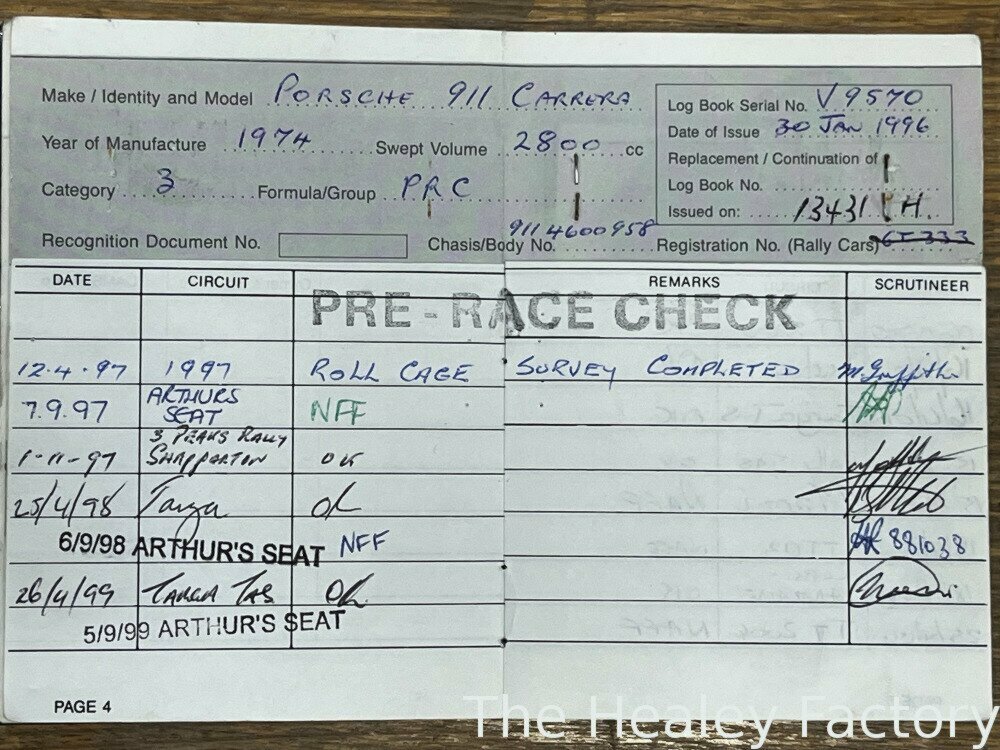 Make / Identity and Model PORSCHE 911 CARRERA
Year of Manufacture 1974 Swept Volume 2800 cc
Category 3 Formula/Group PRC
Recognition Document No. Chasis/Body No. 9114600958 Registration No. (Rally Cars) CT 333
Log Book Serial No. V9570
Date of Issue 30 JAN 1996
Replacement / Continuation of
Log Book No.
Issued on: 13431 H.
DATE CIRCUIT REMARKS SCRUTINEER
PRE-RACE CHECK
12.4.97 1997 ROLL CAGE SURVEY COMPLETED M. Griffiths
7.9.97 ARTHURS SEAT NFF
1-11-97 3 PEAKS RALLY SHAPPARTON OK
25/4/98 Targa OK
6/9/98 ARTHUR'S SEAT NFF 881038
26/4/99 TARGA TAS OK
5/9/99 ARTHUR'S SEAT
PAGE 4
The Healey Factory